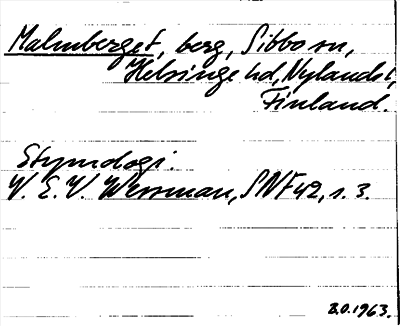 Malmberget, berg, Sibbo sn,
Helsinge hd, Nylands l,
Finland.
Etymologi.
V. E. V. Wessman, SNF 42, s. 3.
B.O. 1963.